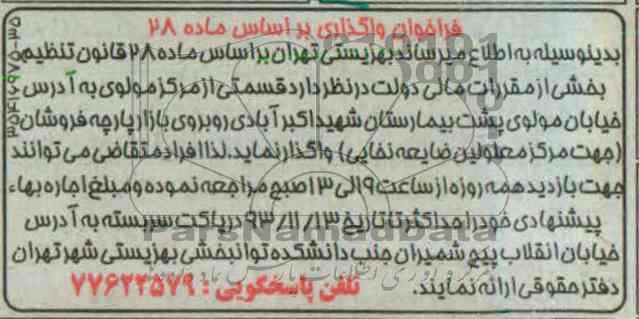 فراخوان واگذاری بر اساس ماده ۲۸
بدینوسیله به اطلاع میرساند بهزیستی تهران بر اساس ماده ۲۸ قانون تنظیم
بخشی از مقررات مالی دولت در نظر دارد قسمتی از مرکز مولوی به آدرس
خیابان مولوی پشت بیمارستان شهید اکبرآبادی روبروی بازار پارچه فروشان
(جهت مرکز معلولین ضایعه نخاعی) واگذار نماید. لذا افراد متقاضی می توانند
جهت بازدید همه روزه از ساعت ۹ الی ۱۳ صبح مراجعه نموده و مبلغ اجاره بهاء
پیشنهادی خود را حداکثر تا تاریخ ۹۳/۱۱/۱۳ در پاکت سربسته به آدرس
خیابان انقلاب پیچ شمیران جنب دانشکده توانبخشی بهزیستی شهر تهران
دفتر حقوقی ارائه نمایند.
تلفن پاسخگویی: ۷۷۶۲۲۵۷۹
ParsNamadData